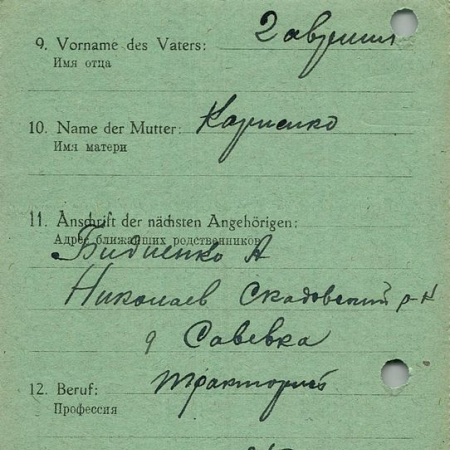 9. Vorname des Vaters: Гавриил
Имя отца
10. Name der Mutter: Карпенко
Имя матери
11. Anschrift der nächsten Angehörigen:
Адрес ближайших родственников
А
Николаев Скадовский р-н
д Савевка
12. Beruf: тракторист
Профессия